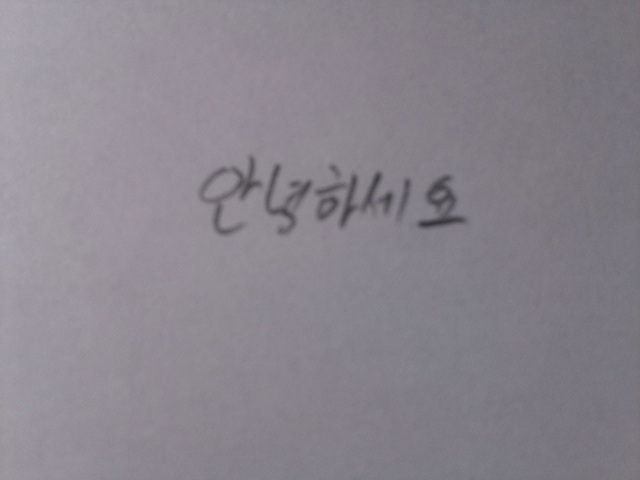 안녁하세요